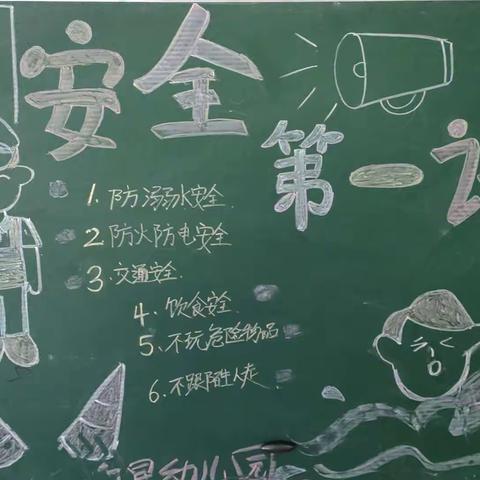 安全
第一
1. 防溺水安全.
2 防火防电安全
3. 交通安全.
4. 饮食安全.
5. 不玩危险物品
6. 不跟陌生人走.
幼儿园